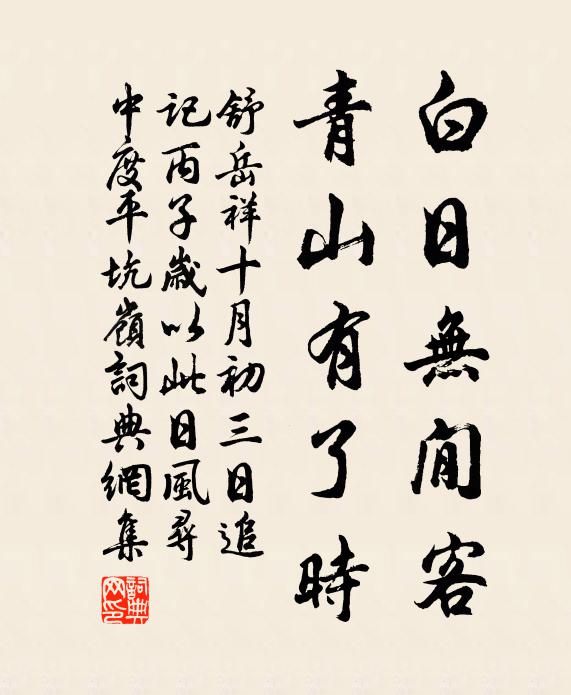 白日無閒客
青山有了時
舒岳祥十月初三日追
記丙子歲以此日風尋
中度平坑嶺詞典網集
詞典
网印